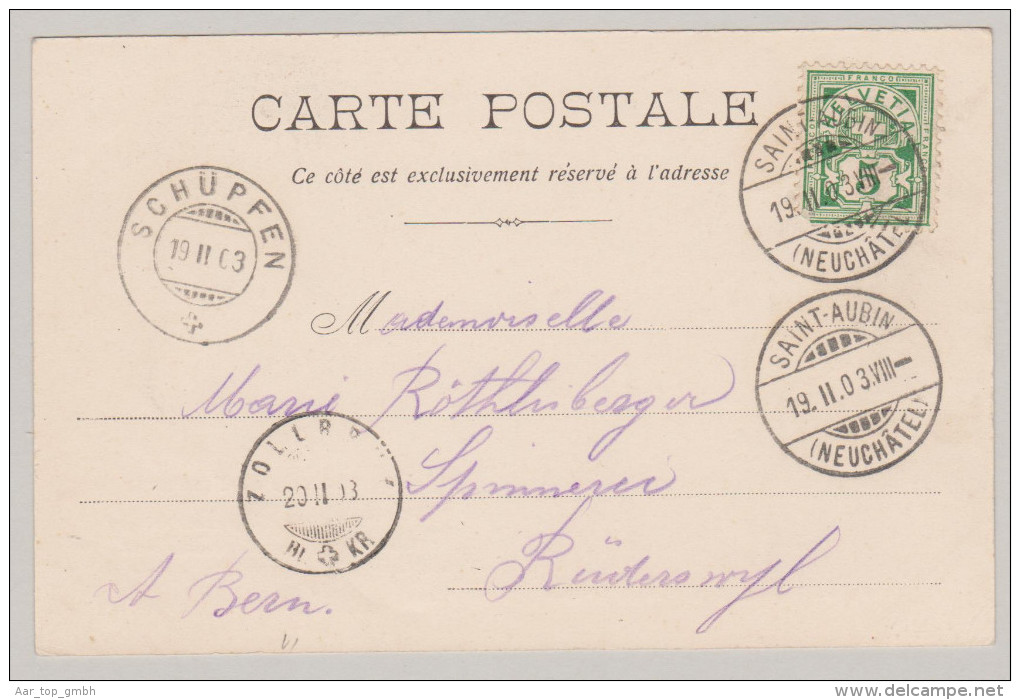 CARTE POSTALE
Ce côté est exclusivement réservé à l'adresse
FRANCO
HELVETIA
FRANCO
5
SAINT-AUBIN
19.II.03.VIII–
(NEUCHÂTEL)
SCHÜPFEN
19 II 03
SAINT-AUBIN
19.II.03.VIII–
(NEUCHÂTEL)
Mademoiselle
Marie Röthlisberger
ZOLLBR
20 II 03
KR
Spinnerei
Rüderswyl
Ct Bern.
Aar_top_gmbh
www.delcampe.net